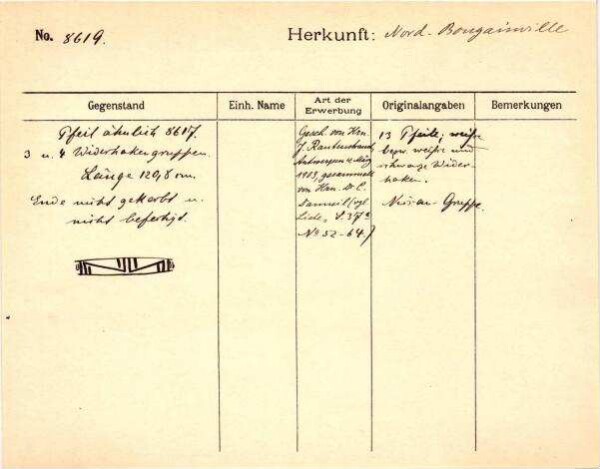 No. 8619.
Herkunft: Nord-Bougainville
Gegenstand
Einh. Name
Art der
Erwerbung
Originalangaben
Bemerkungen
Pfeil ähnlich 8617.
3 u. 4 Widerhakengruppen.
Länge 129,8 cm.
Ende nicht gekerbt u.
nicht befestigt.
Gesch. von Hrn.
J. Rautenstrauch,
Antwerpen März
1913, gesammelt
von Hrn.
No 52-64.)
13 Pfeile; weiße
bezw. weiße und
schwarze Wider-
haken.
Nissan-Gruppe.